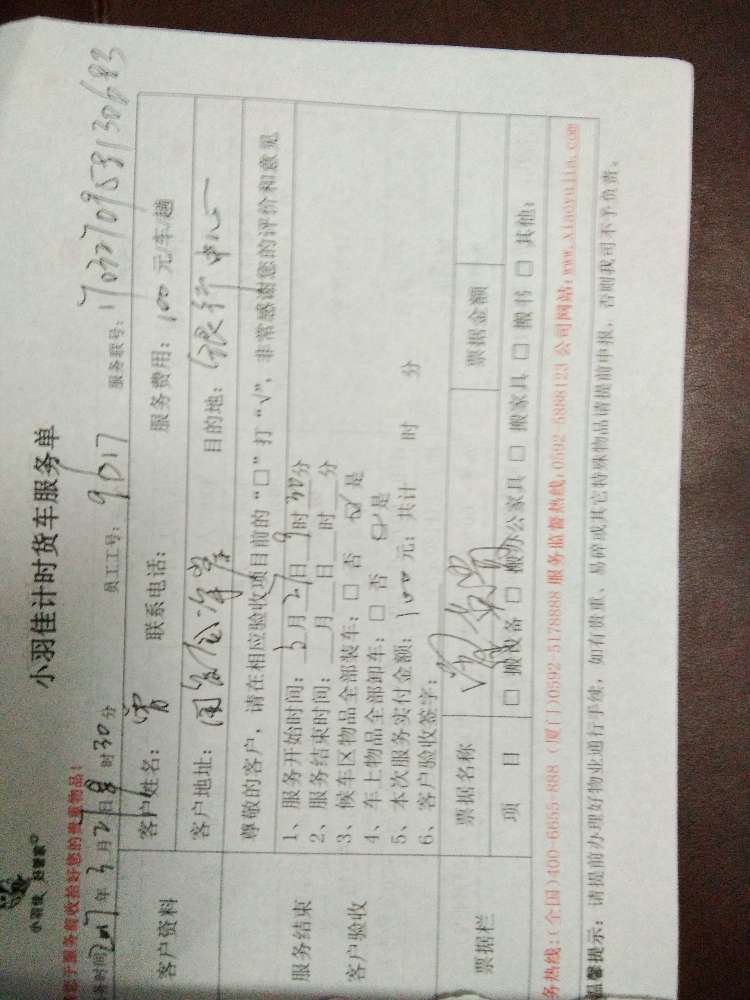 小羽佳 好管家
小羽佳计时货车服务单
请您于服务前收拾好您的贵重物品!
务时间 2017年3月27日8时30分 员工工号: 9017 服务联号: 170327095813068 3
客户资料
客户姓名: 曾 联系电话: 服务费用: 100元/车/趟
客户地址: 目的地: 银行中心
服务结束
客户验收
尊敬的客户, 请在相应验收项目前的“□”打“√”, 非常感谢您的评价和意见
1、服务开始时间: 3月27日9时30分
2、服务结束时间: 月 日 时 分
3、候车区物品全部装车: □ 否 ☑ 是
4、车上物品全部卸车: □ 否 ☑ 是
5、本次服务实付金额: 100元; 共计 时 分
6、客户验收签字:
票据栏
票据名称 票据金额
项 目 □ 搬设备 □ 搬办公家具 □ 搬家具 □ 搬书 □ 其他:
务热线:(全国)400-6655-888 (厦门)0592-5178888 服务监督热线:0592-5888123 公司网站:www.xiaoyujia.com
温馨提示: 请提前办理好物业通行手续, 如有贵重、易碎或其它特殊物品请提前申报, 否则我司不予负责。